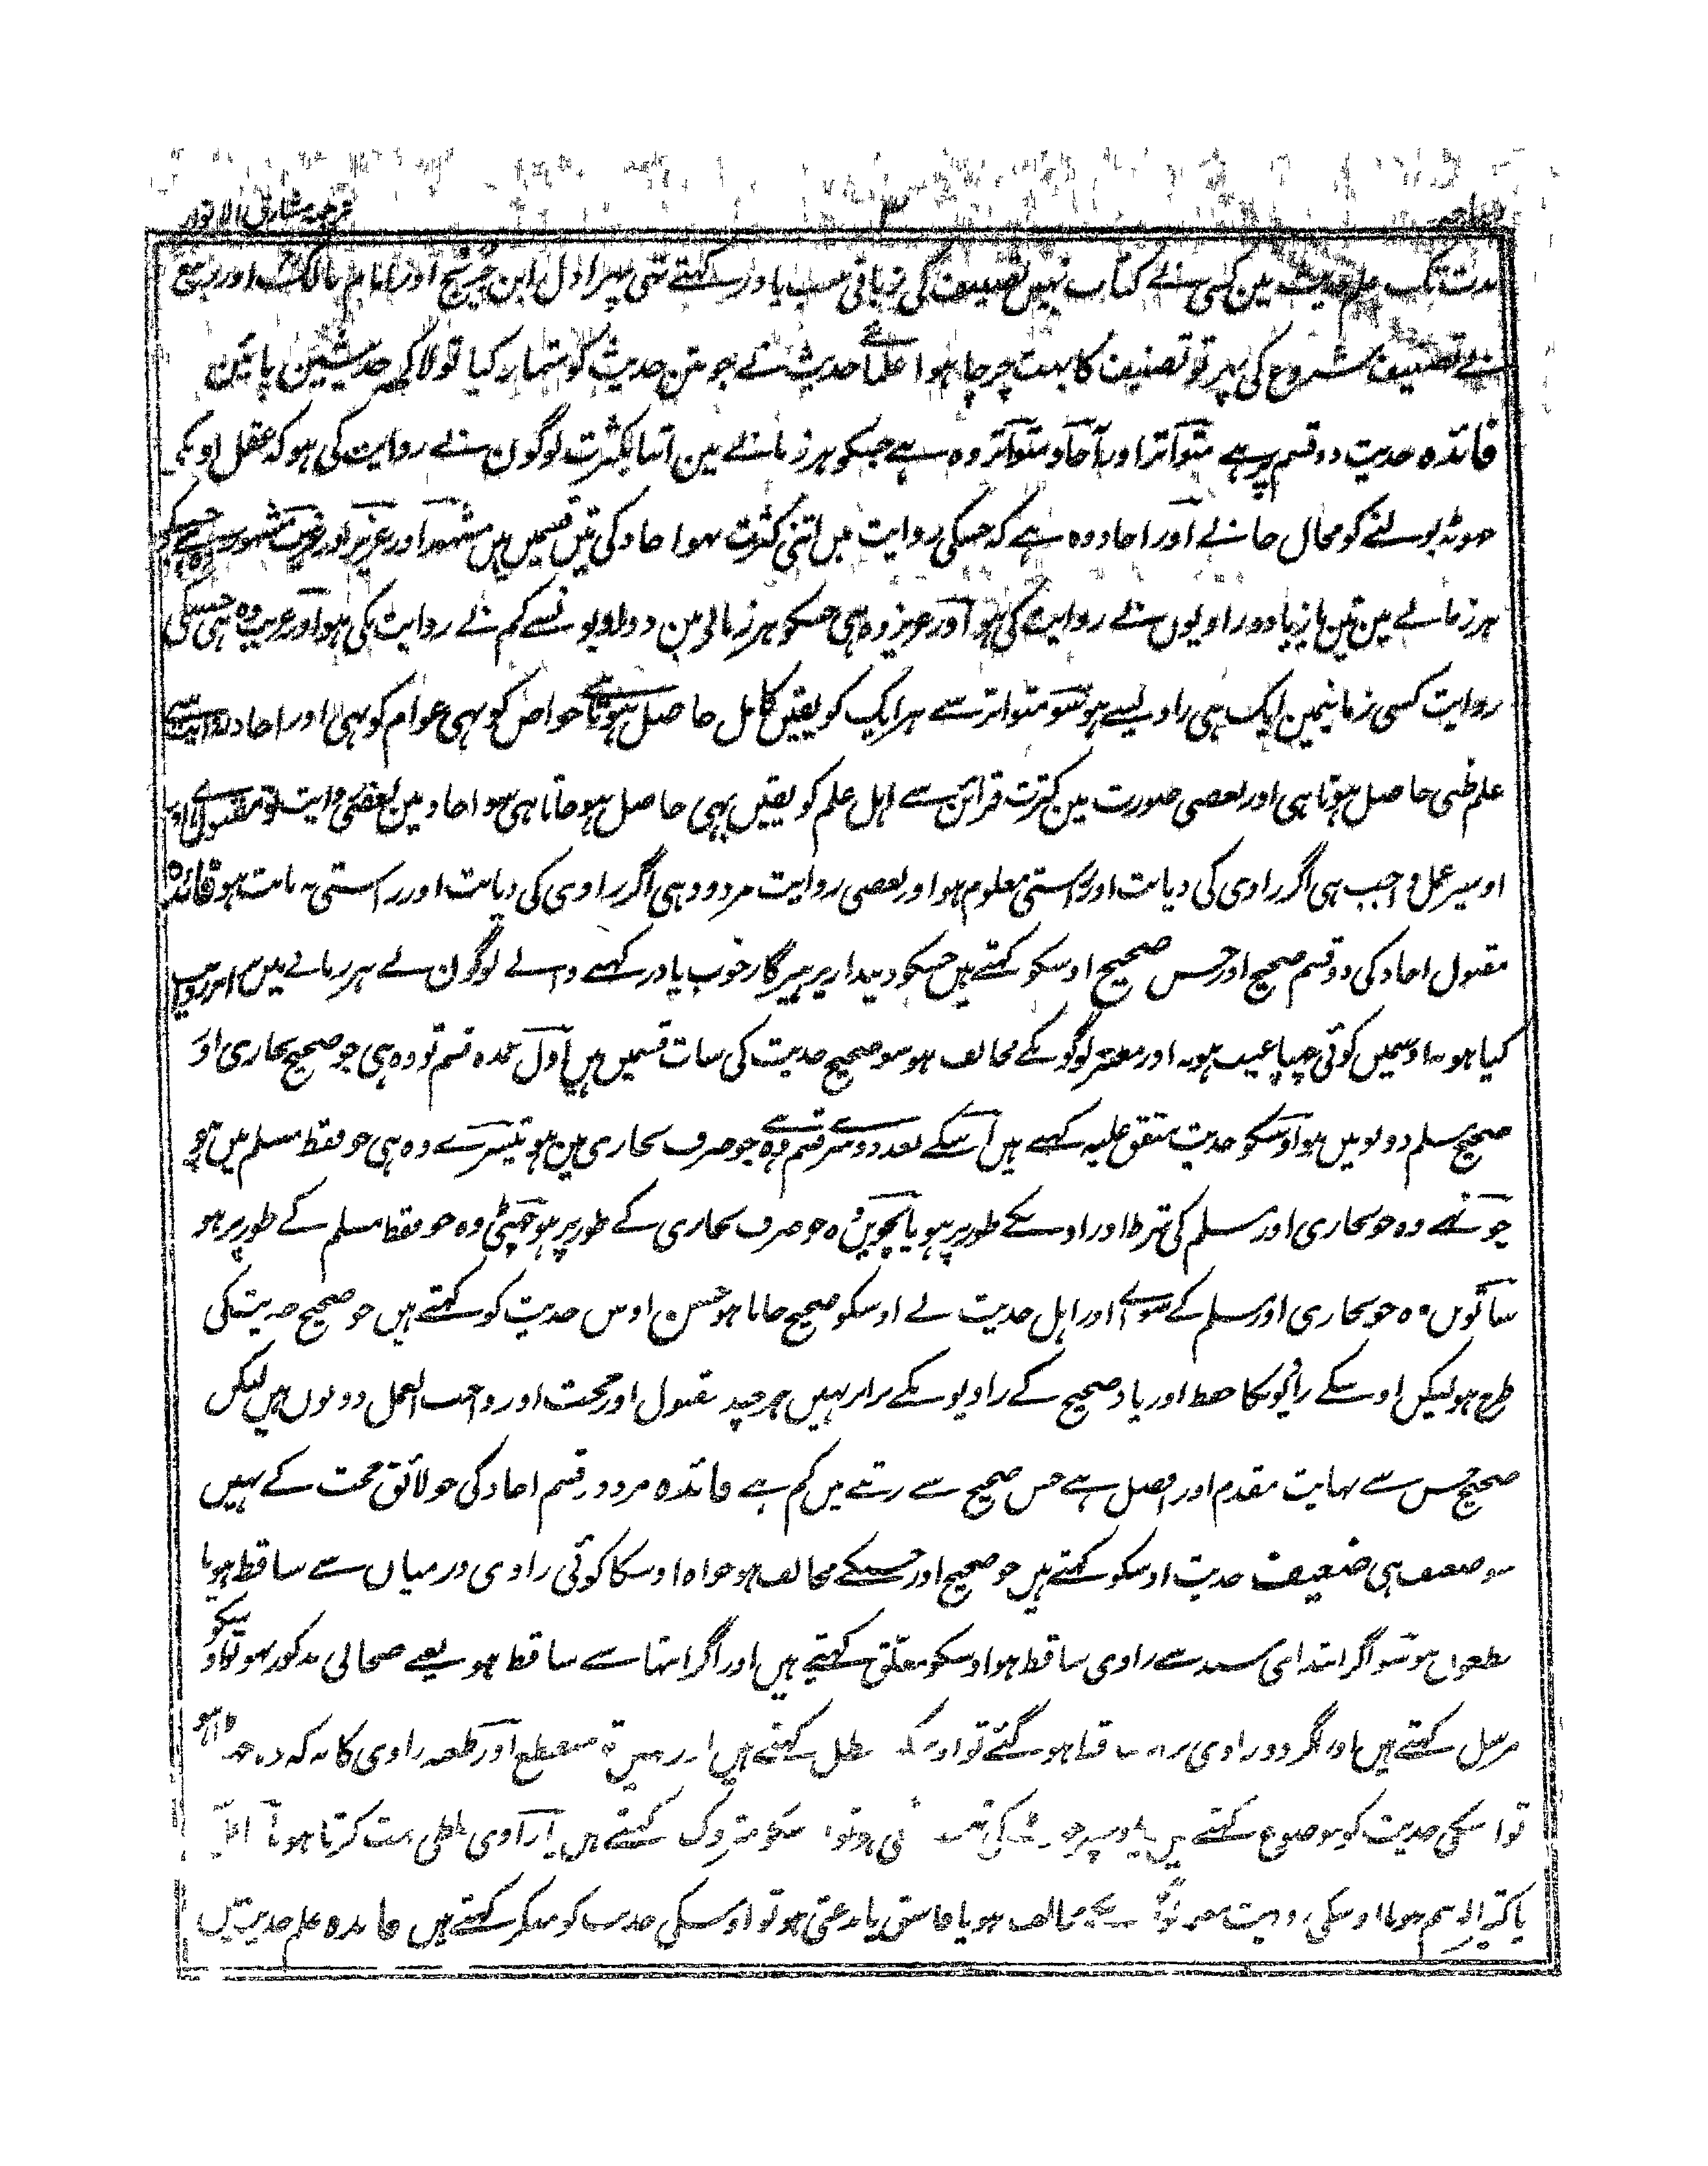 ترجمہ مشارق الانوار
مدت تک علم حدیث مین کسی نے کتاب نہیں تصنیف کی زبانی سب یاد رکھتے تھی پہر اول ابن جریج اور امام مالک اور ربیع
نے تصنیف شروع کی پہر تو تصنیف کا بہت چرچا ہوا علمائے حدیث نے جو متن حدیث کو شمار کیا تو لاکھ حدیثین پائین
فائدہ حدیث دو قسم پر ہے متواتر اور آحاد متواتر وہ ہے جسکو ہر زمانے مین اتنا بکثرت لوگون نے روایت کی ہو کہ عقل اونکی
جہوٹھ بولنے کو محال جانے اور احاد وہ ہے کہ جسکی روایت میں اتنی کثرت نہو احاد کی تین قسمیں ہیں مشہور اور عزیز اور غریب مشہور
ہر زمانے مین تین یا زیادہ راویوں نے روایت کی ہو اور عزیز وہ ہی جسکو ہر زمانی مین دو راویو نسے کم نے روایت نکی ہو اور غریب وہ ہی جسکی
روایت کسی زمانیمین ایک ہی راویسے ہو سو متواتر سے ہر ایک کو یقین کامل حاصل ہوتا ہے خواص کو بہی عوام کو بہی اور احاد
علم ظنی حاصل ہوتا ہی اور بعضی صورت مین کثرت قرائن سے اہل علم کو یقین بہی حاصل ہو جاتا ہی سو احاد مین بعضی روایت تو مقبول ہے
اوسپر عمل واجب ہی اگر راوی کی دیانت اور راستی معلوم ہو اور بعضی روایت مردود ہی اگر راوی کی دیانت اور راستی نہ ثابت ہو فائدہ
مقبول احاد کی دو قسم صحیح اور حسن صحیح اوسکو کہتے ہیں جسکو دیندار پرہیزگار خوب یاد رکہنے والے لوگون نے ہر زمانے میں برابر روایت
کیا ہو نہ اوسمیں کوئی چہپا عیب ہو نہ اور معتبر لوگو نکے مخالف ہو سو صحیح حدیث کی سات قسمیں ہیں اول عمدہ قسم تو وہ ہی جو صحیح بخاری اور
صحیح مسلم دونو میں ہو اوسکو حدیث متفق علیہ کہتے ہیں اسکے بعد دوسرے قسم وہ ہے جو صرف بخاری مین ہو تیسرے وہ ہی جو فقط مسلم میں ہو
چوتھے وہ جو بخاری اور مسلم کی شرط اور اونکے طور پر ہو پانچویں وہ جو صرف بخاری کے طور پر ہو چھٹی وہ جو فقط مسلم کے طور پر ہو
ساتویں وہ جو بخاری اور مسلم کے سوائے اور اہل حدیث نے اوسکو صحیح جانا ہو حسن اوس حدیث کو کہتے ہیں جو صحیح حدیث کی
طرح ہو لیکن اوسکے راویوں کا حفظ اور یاد صحیح کے راویونکے برابر نہیں ہر چند مقبول اور حجت اور واجب العمل دونوں ہیں لیکن
صحیح حسن سے نہایت مقدم اور افضل ہے حسن صحیح سے رتبے میں کم ہے فائدہ مردود قسم احاد کی جو لائق حجت کے نہیں
سو ضعیف ہی ضعیف حدیث اوسکو کہتے ہیں جو صحیح اور حسنکے مخالف ہو خواہ اوسکا کوئی راوی درمیان سے ساقط ہو یا
مطعون ہو سو اگر ابتدای سند سے راوی ساقط ہو اوسکو معلق کہتے ہیں اور اگر انتہا سے ساقط ہو یعنے صحابی مذکور نہو تو اوسکو
مرسل کہتے ہیں اور اگر دو راوی برابر ساقط ہو گئے تو اوسکو معضل کہتے ہیں اور نہیں تو منقطع اور طعنہ راوی کا یہ کہ وہ جہوٹا ہو
تو اسکی حدیث کو موضوع کہتے ہیں یا اوسپر جہوٹ کی تہمت ہوئی ہو تو اوسکو متروک کہتے ہیں یا راوی غلطی بہت کرتا ہو یا
یا کثیر الوہم ہو یا اوسکی روایت معتبر لوگوں کے مخالف ہو یا فاسق یا بدعتی ہو تو اوسکی حدیث کو منکر کہتے ہیں فائدہ علم حدیث میں